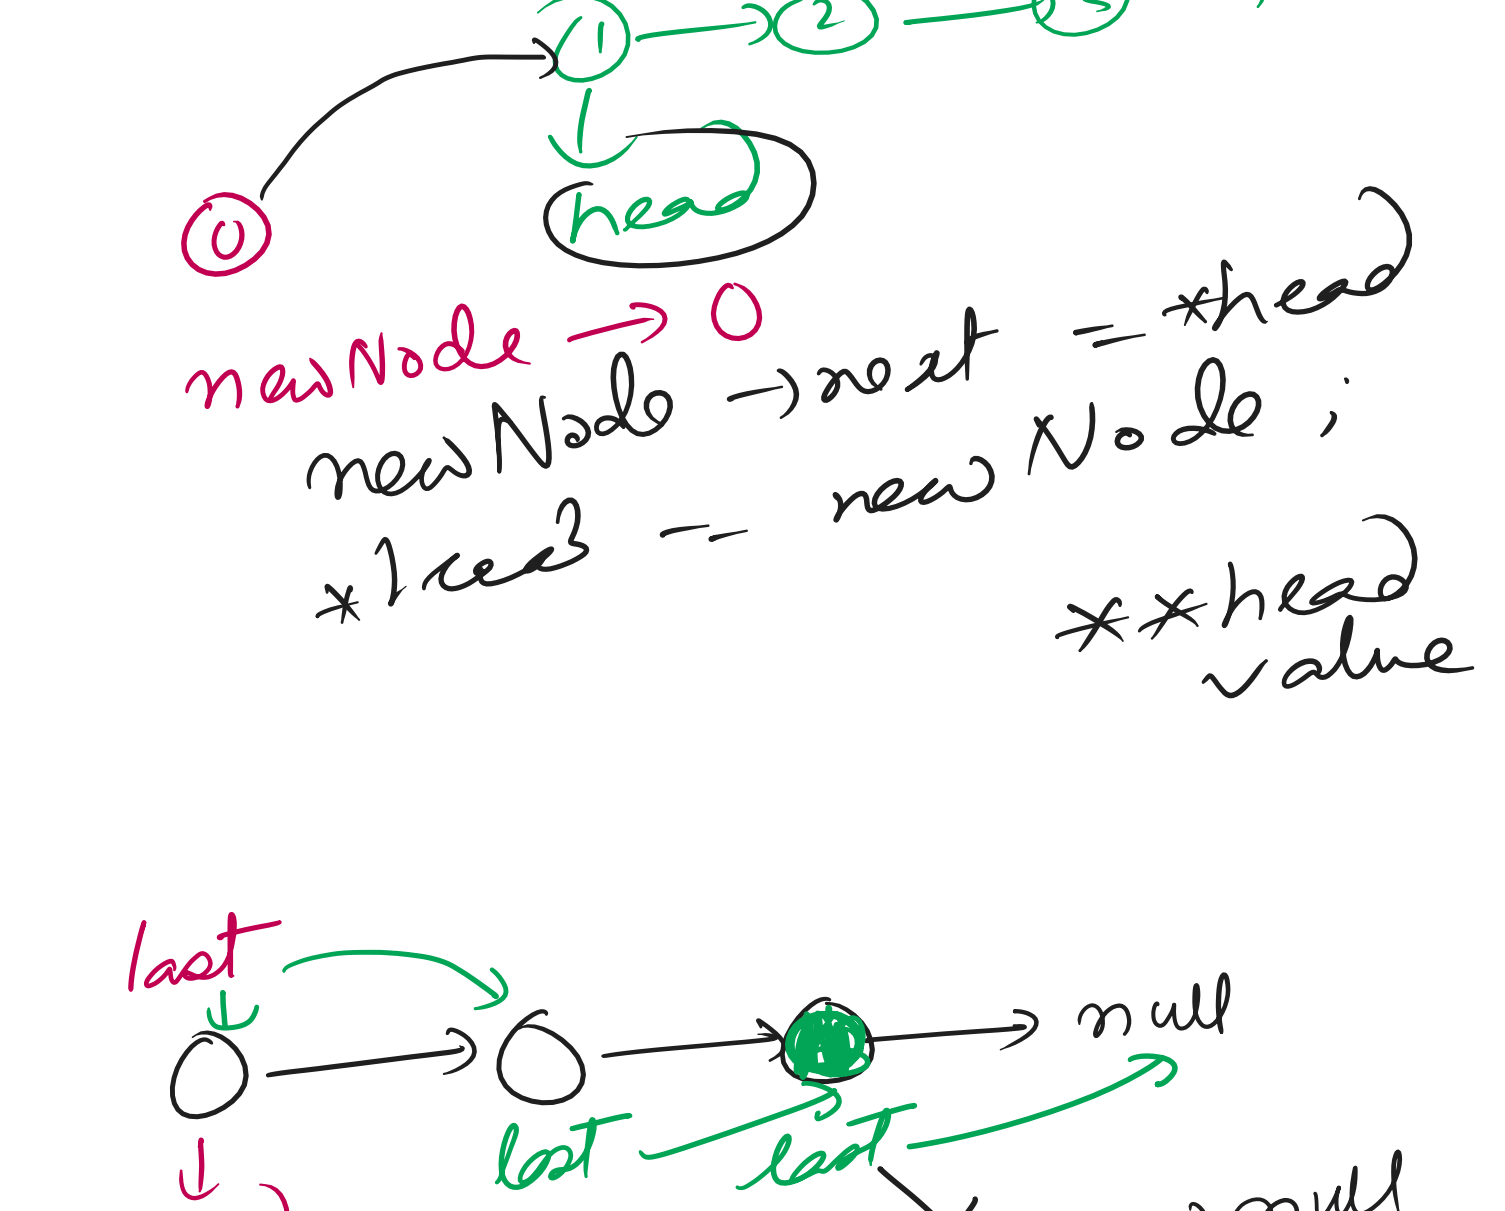 1 → 2 →
head
0
newNode → 0
newNode → next = *head
*head = newNode ;
**head
value
last
→ null
last last
null